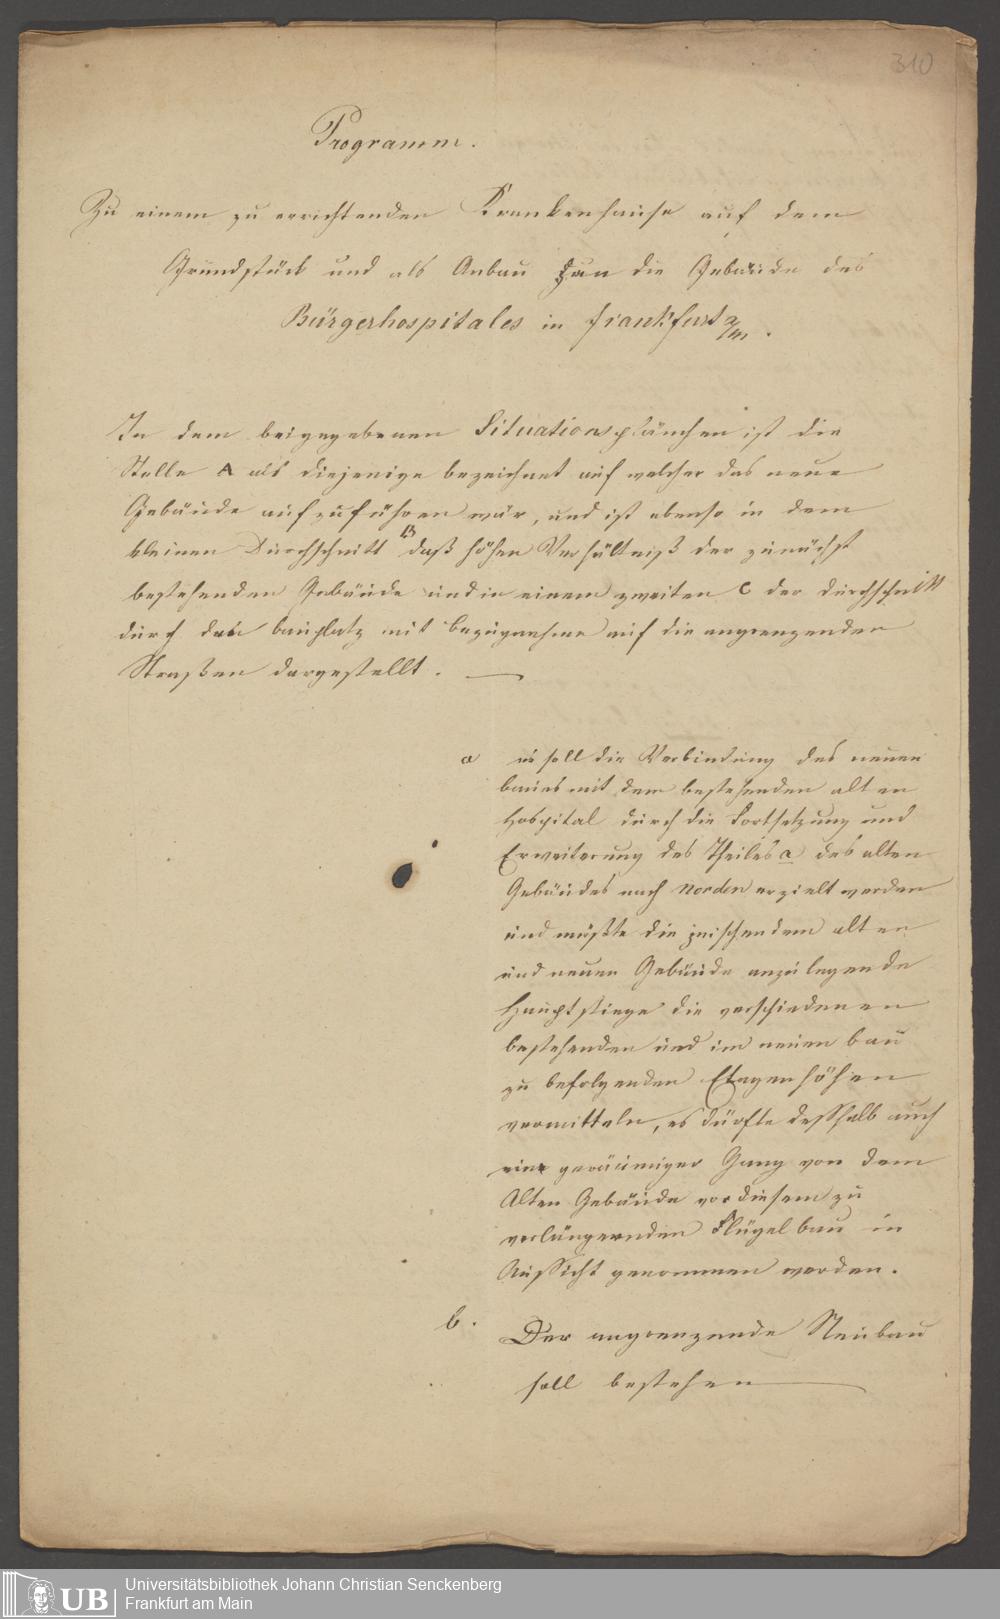 310
Programm.
Zu einem zu errichtenden Krankenhause auf dem
Grundstück und als Anbau an die Gebäude des
Bürgerhospitales in Frankfurt a/m.
In dem beigegebenen Situationsplänchen ist die
Stelle A als diejenige bezeichnet auf welcher das neue
Gebäude aufzuführen wär, und ist ebenso in dem
kleinen Durchschnitt B daß höhen Verhältniß der zunächst
bestehenden Gebäude und in einem zweiten C der Durchschnitt
durch den bauplatz mit bezugnahme auf die angrenzenden
Straßen dargestellt. —
a es soll die Verbindung des neuen
baues mit dem bestehenden alten
Hospital durch die Fortsetzung und
Erweiterung des Theiles a des alten
Gebäudes nach Norden erzielt werden
und müßte die zwischen dem alten
und neuen Gebäude anzulegende
Hauptstiege die verschiedenen
bestehenden und im neuen bau
zu befolgenden Etagenhöhen
vermitteln, es dürfte desshalb auch
ein geräumiger Gang von dem
Alten Gebäude vor diesem zu
verlängernden Flügelbau in
Aussicht genommen werden.
b. Der angrenzende Neubau
soll bestehen
UB
Universitätsbibliothek Johann Christian Senckenberg
Frankfurt am Main